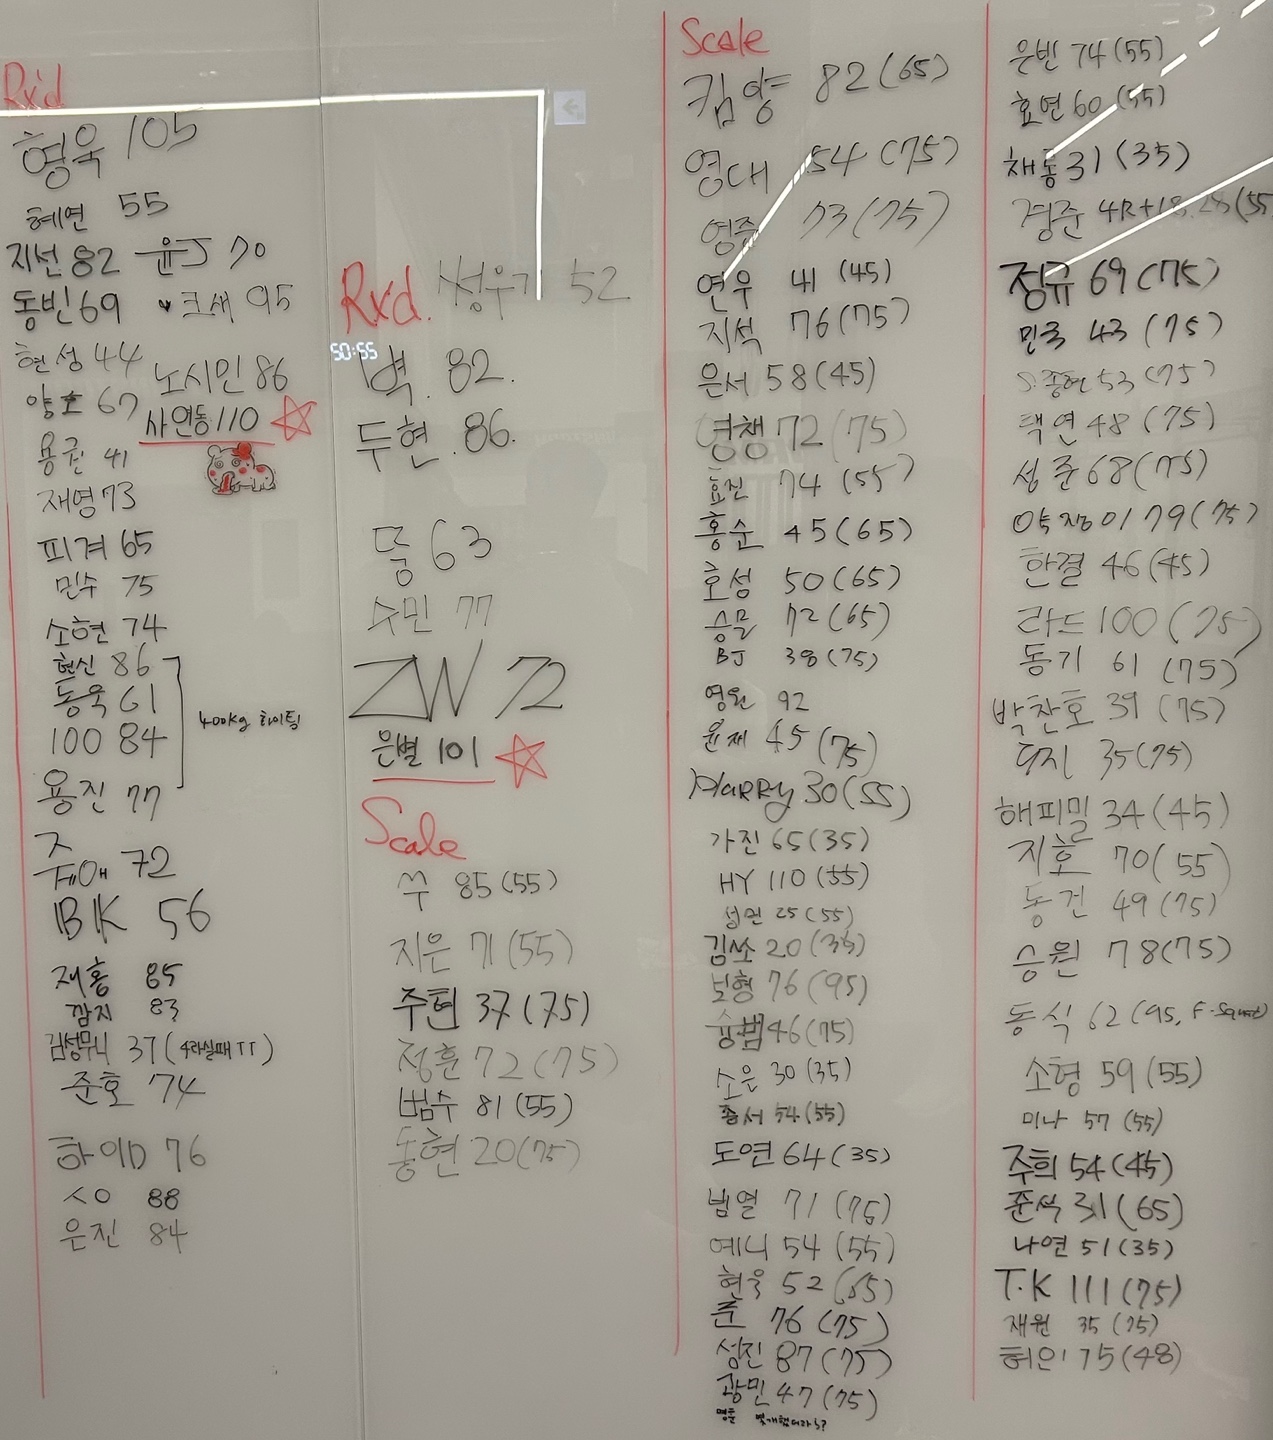 Rx'd
형욱 105
혜연 55
지선 82 윤J 70
동빈 69 ♥크새 95
현성 44
노시민 86
양호 67
사연동 110
용권 41
재영 73
피겨 65
민수 75
소현 74
현신 86
동욱 61
400kg 화이팅
100 84
용진 77
쥬쥬애 72
BK 56
재홍 85
깜지 83
김성무니 37 (4라실패TT)
준호 74
하이D 76
ㅅㅇ 88
은진 84
Rx'd. 성우기 52
50:55
벽. 82.
두현. 86.
뚱 63
수민 77
ZW 72
은별 101
Scale
쑤 85 (55)
지은 71 (55)
주현 37 (75)
정훈 72 (75)
범수 81 (55)
동현 20 (75)
Scale
킴양 82 (65)
영대 54 (75)
영준 73 (75)
연우 41 (45)
지석 76 (75)
은서 58 (45)
영챙 72 (75)
효진 74 (55)
홍순 45 (65)
호성 50 (65)
승물 72 (65)
BJ 38 (75)
영원 92
윤재 45 (75)
HARRY 30 (55)
가진 65 (35)
HY 110 (55)
성민 25 (55)
김쏘 20 (35)
보형 76 (95)
승범 46 (75)
소은 30 (35)
종서 54 (55)
도연 64 (35)
범열 71 (75)
예니 54 (55)
현욱 52 (65)
준 76 (75)
성진 87 (75)
광민 47 (75)
명훈 몇개했더라?
은빈 74 (55)
효연 60 (55)
채통 31 (35)
경준 4R+18 (55
정규 69 (75)
민국 43 (75)
S.종현 53 (75)
택연 48 (75)
성준 68 (75)
약쟁이 79 (75)
한결 46 (45)
라드 100 (75)
동기 61 (75)
박찬호 39 (75)
두지 35 (75)
해피밀 34 (45)
지호 70 (55)
동건 49 (75)
승원 78 (75)
동식 62 (95, F-Squat)
소형 59 (55)
미나 57 (55)
주희 54 (45)
준석 31 (65)
나연 51 (35)
T.K 111 (75)
재원 35 (75)
허인 75 (48)